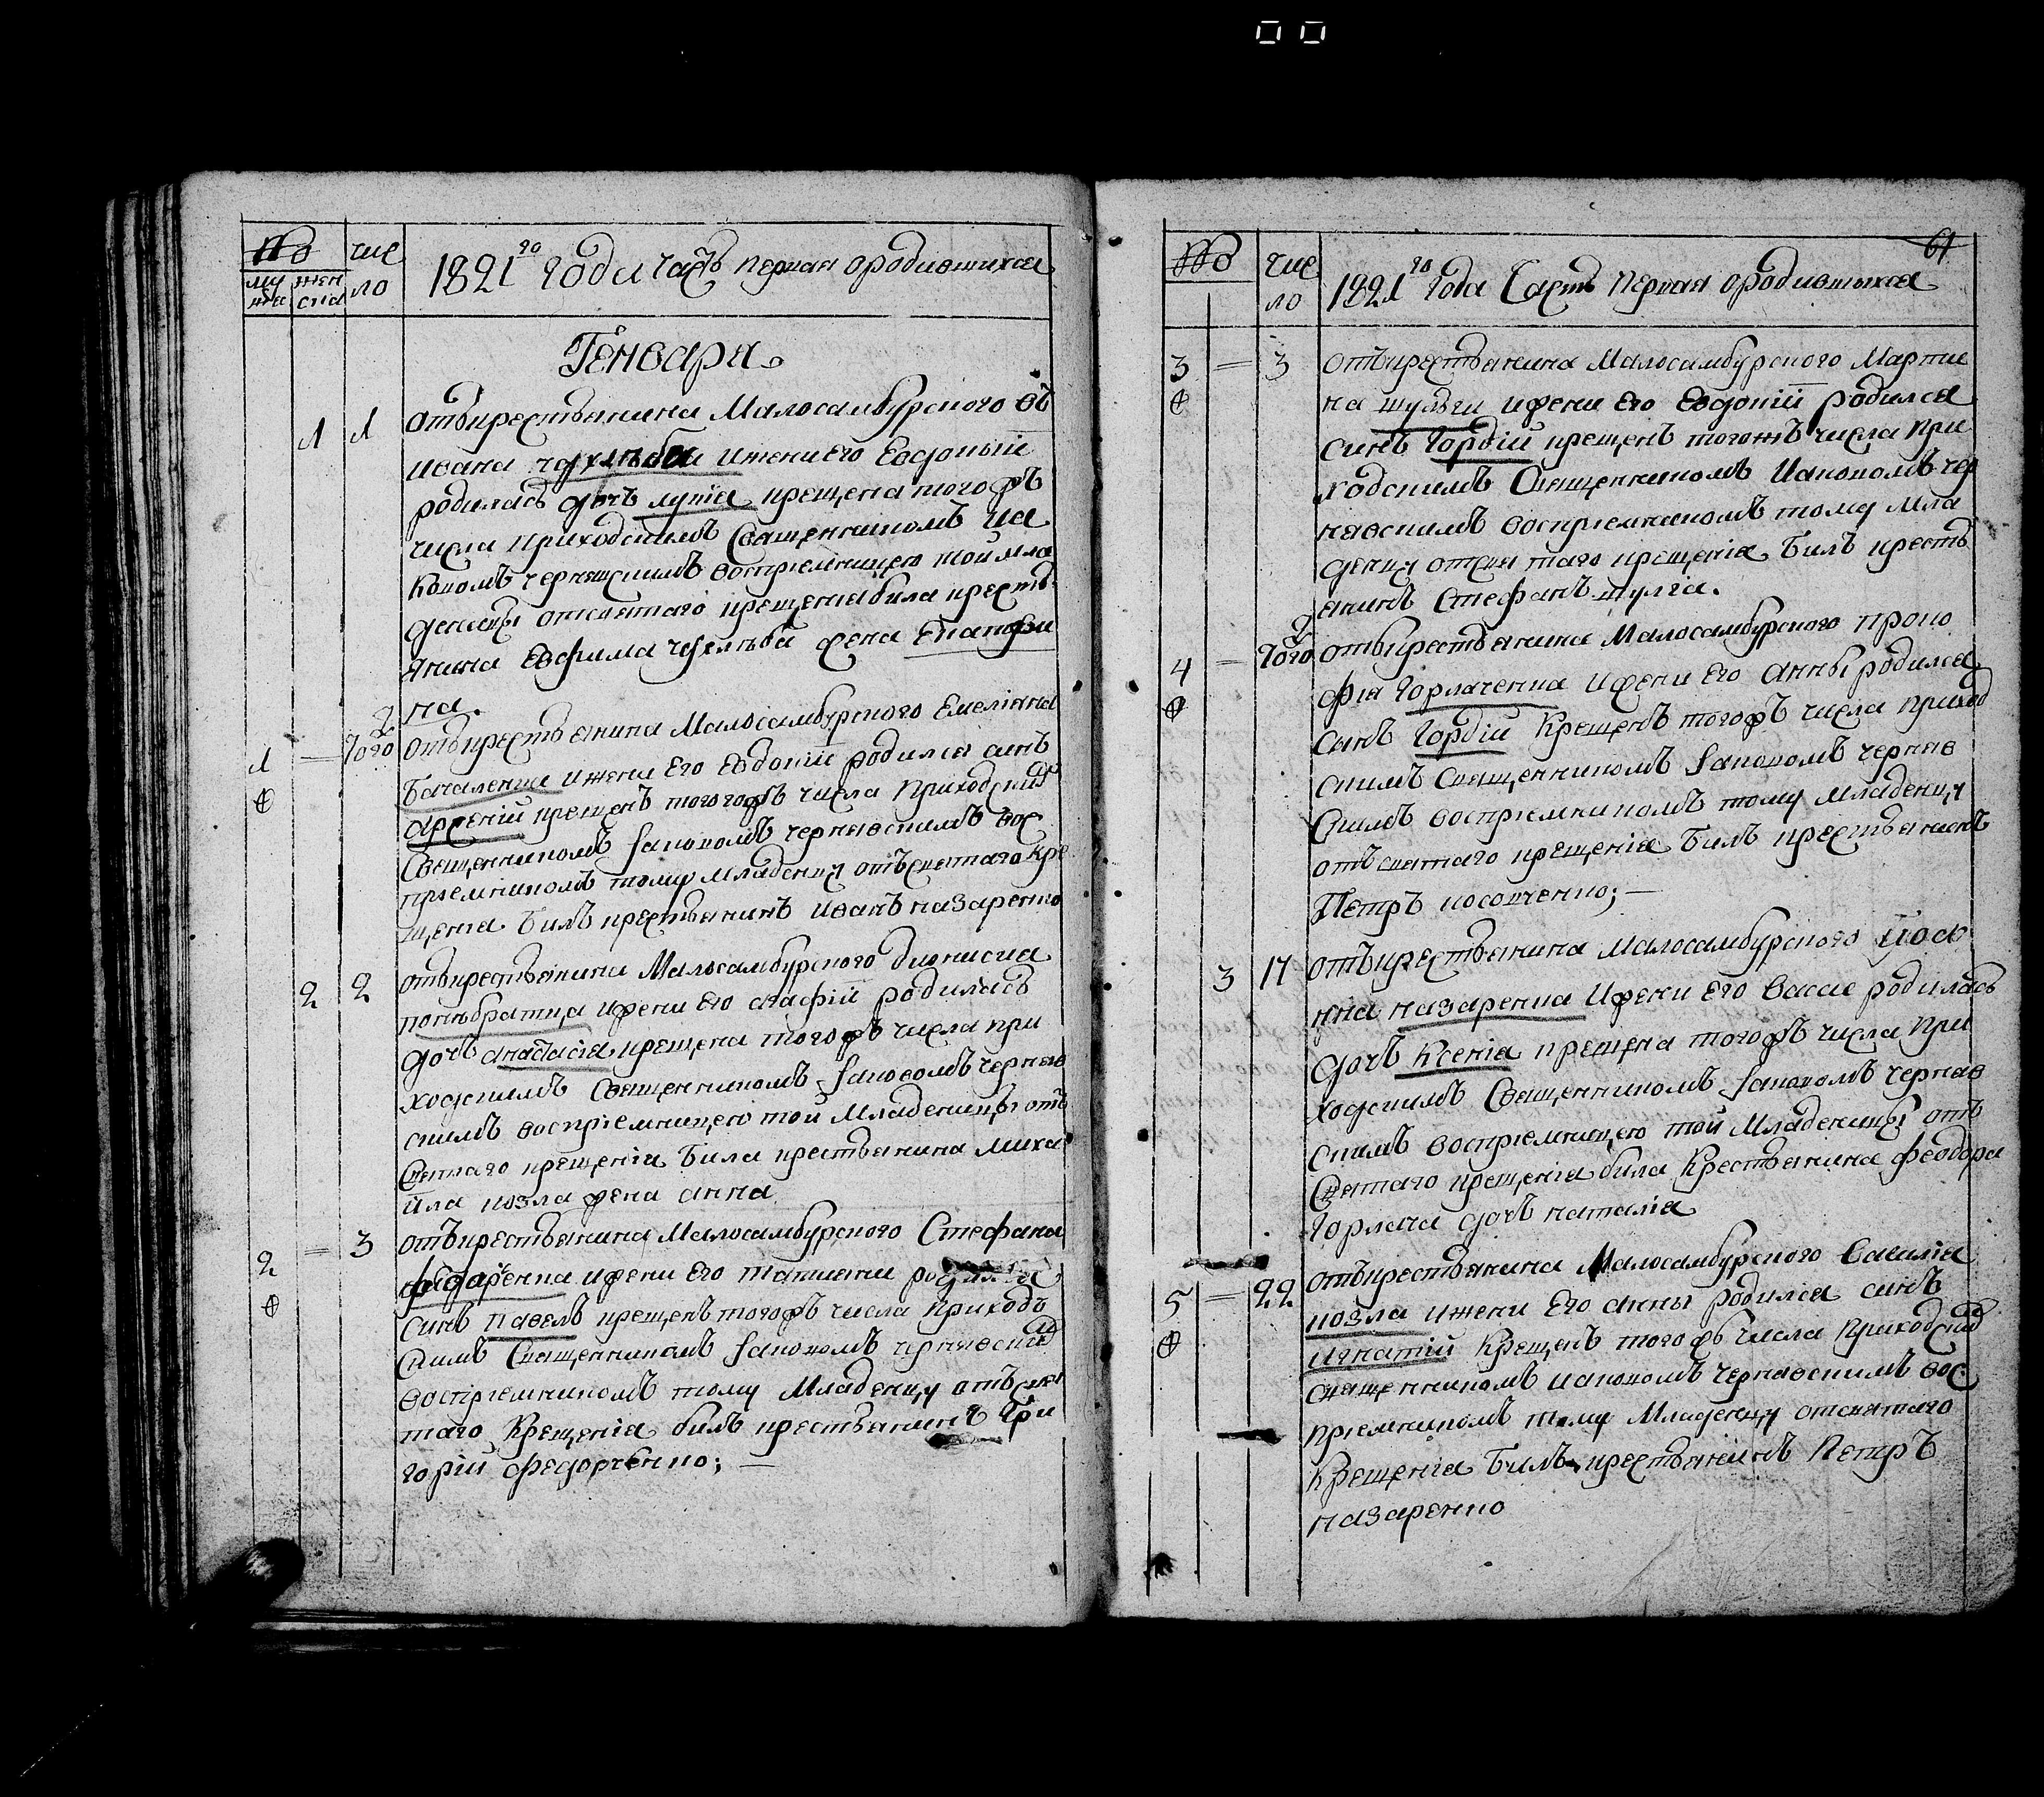 № чис 1821го года часть первая о родившихся
му жен ло
жеск ска
Генваря
1 1 отъ крестьянина Малосамбурского
Ивана и жени его Евдокіи
родилась дочь крещена того жъ
числа приходскимъ Священникомъ Иа
ковомъ Чернявскимъ восприемницею той мла
деници от святаго крещенія била кресть
янина Евфима жена Екатери
на.
1 — того отъ крестьянина Малосамбурского Емеліяна
Бакаленка и жени его Евдокіи родился синъ
Арсеній крещенъ того жъ числа приходским
Священникомъ Іаковомъ Чернявскимъ вос
приемникомъ тому младенцу отъ святаго кре
щенія билъ крестьянинъ Иванъ Назаренко
2 2 отъ крестьянина Малосамбурского Дионисия
и жени его Агафіи родилась
дочь Анастасіа крещена того жъ числа при
ходскимъ Священникомъ Іаковомъ Черняв
скимъ восприемницею той младеници отъ
Святаго крещенія била крестьянина Миха
ила Козла жена Анна
2 = 3 отъ крестьянина Малосамбурского Стефана
Федоренка и жени его Татияни родился
синъ Павелъ крещенъ того жъ числа приход
скимъ Священникомъ Іаковомъ Чернявским
восприемникомъ тому младенцу отъ свя
таго Крещенія билъ крестьянинъ Гри
горій Федорченко; —
61
№ чис 1821го года Часть Первая о родившихся
ло
3 = 3 отъ крестьянина Малосамбурского Марти
на Шулги и жени его Евдокіи родился
синъ Гордій крещенъ того жъ числа при
ходскимъ Священникомъ Иаковомъ Чер
нявскимъ восприемникомъ тому мла
денцу от святаго крещенія билъ кресть
янинъ Стефанъ Шулга.
4 = того отъ крестьянина Малосамбурского Проко
фія Горлаченка и жени его Анны родился
сынъ Гордій Крещенъ того жъ числа приход
скимъ Священникомъ Іаковомъ Черняв
скимъ восприемникомъ тому младенцу
отъ святаго крещенія билъ крестьянинъ
Петръ ; —
3 17 отъ крестьянина Малосамбурского Іоа
нна Назаренка и жени его Васси родилась
дочь Ксенія крещена того жъ числа при
ходскимъ Священникомъ Іаковомъ Черняв
скимъ восприемницею той младеници отъ
Святаго крещенія била Крестьянина Феодора
Горлача дочь Наталія
5 = 22 отъ крестьянина Малосамбурского Василіа
Козла и жени его Анны родился синъ
Игнатій Крещенъ того жъ числа приходским
Священникомъ Иаковомъ Чернявскимъ вос
приемникомъ тому младенцу от святаго
Крещенія билъ крестьянинъ Петръ
Назаренко